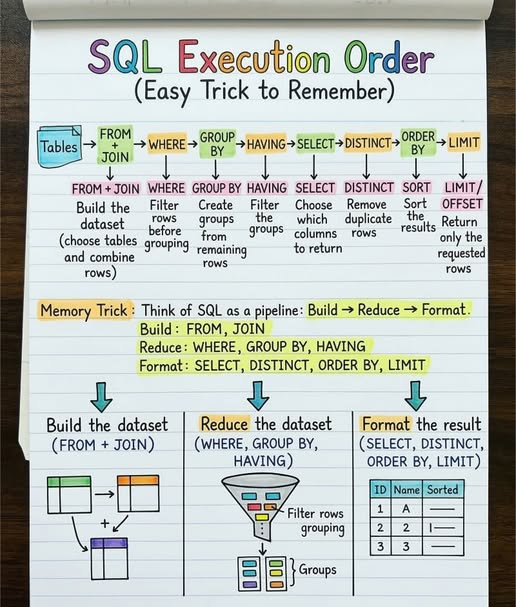 SQL Execution Order
(Easy Trick to Remember)
Tables
FROM
+
JOIN
WHERE
GROUP
BY
HAVING
SELECT
DISTINCT
ORDER
BY
LIMIT
FROM + JOIN
Build the
dataset
(choose tables
and combine
rows)
WHERE
Filter
rows
before
grouping
GROUP BY
Create
groups
from
remaining
rows
HAVING
Filter
the
groups
SELECT
Choose
which
columns
to return
DISTINCT
Remove
duplicate
rows
SORT
Sort
the
results
LIMIT/
OFFSET
Return
only the
requested
rows
Memory Trick: Think of SQL as a pipeline: Build → Reduce → Format.
Build: FROM, JOIN
Reduce: WHERE, GROUP BY, HAVING
Format: SELECT, DISTINCT, ORDER BY, LIMIT
Build the dataset
(FROM + JOIN)
+
Reduce the dataset
(WHERE, GROUP BY,
HAVING)
Filter rows
grouping
Groups
Format the result
(SELECT, DISTINCT,
ORDER BY, LIMIT)
ID Name Sorted
1 A
2 2
3 3